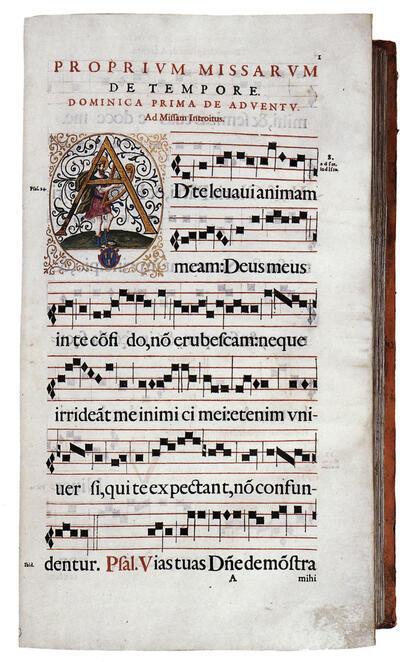 1
PROPRIVM MISSARVM
DE TEMPORE.
DOMINICA PRIMA DE ADVENTV.
Ad Missam Introitus.
8.
Psal. 24.
AD te leuaui animam
meam: Deus meus
in te cōfi do, nō erubescam: neque
irrideāt me inimi ci mei: etenim vni-
uer si, qui te expectant, nō confun-
dentur. Psal. Vias tuas Dn̄e demōstra
Ibid.
A
mihi